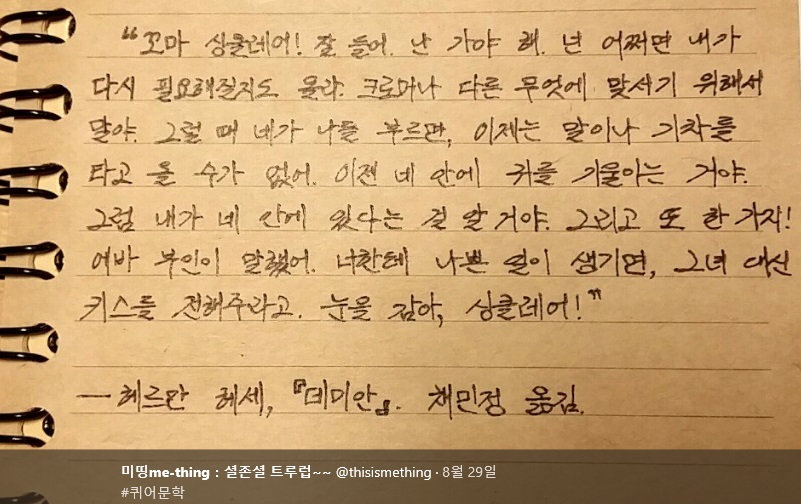 “꼬마 싱클레어! 잘 들어. 난 가야 해. 넌 어쩌면 내가
다시 필요해질지도 몰라. 크로머나 다른 무엇에 맞서기 위해서
말야. 그럴 때 네가 나를 부르면, 이제는 말이나 기차를
타고 올 수가 없어. 이젠 네 안에 귀를 기울이는 거야.
그럼 내가 네 안에 있다는 걸 알 거야. 그리고 또 한 가지!
에바 부인이 말했어. 너한테 나쁜 일이 생기면, 그녀 대신
키스를 전해주라고. 눈을 감아, 싱클레어!”
— 헤르만 헤세, 『데미안』. 채민정 옮김.
미띵me-thing : 셜존셜 트루럽~~ @thisismething · 8월 29일
#퀴어문학